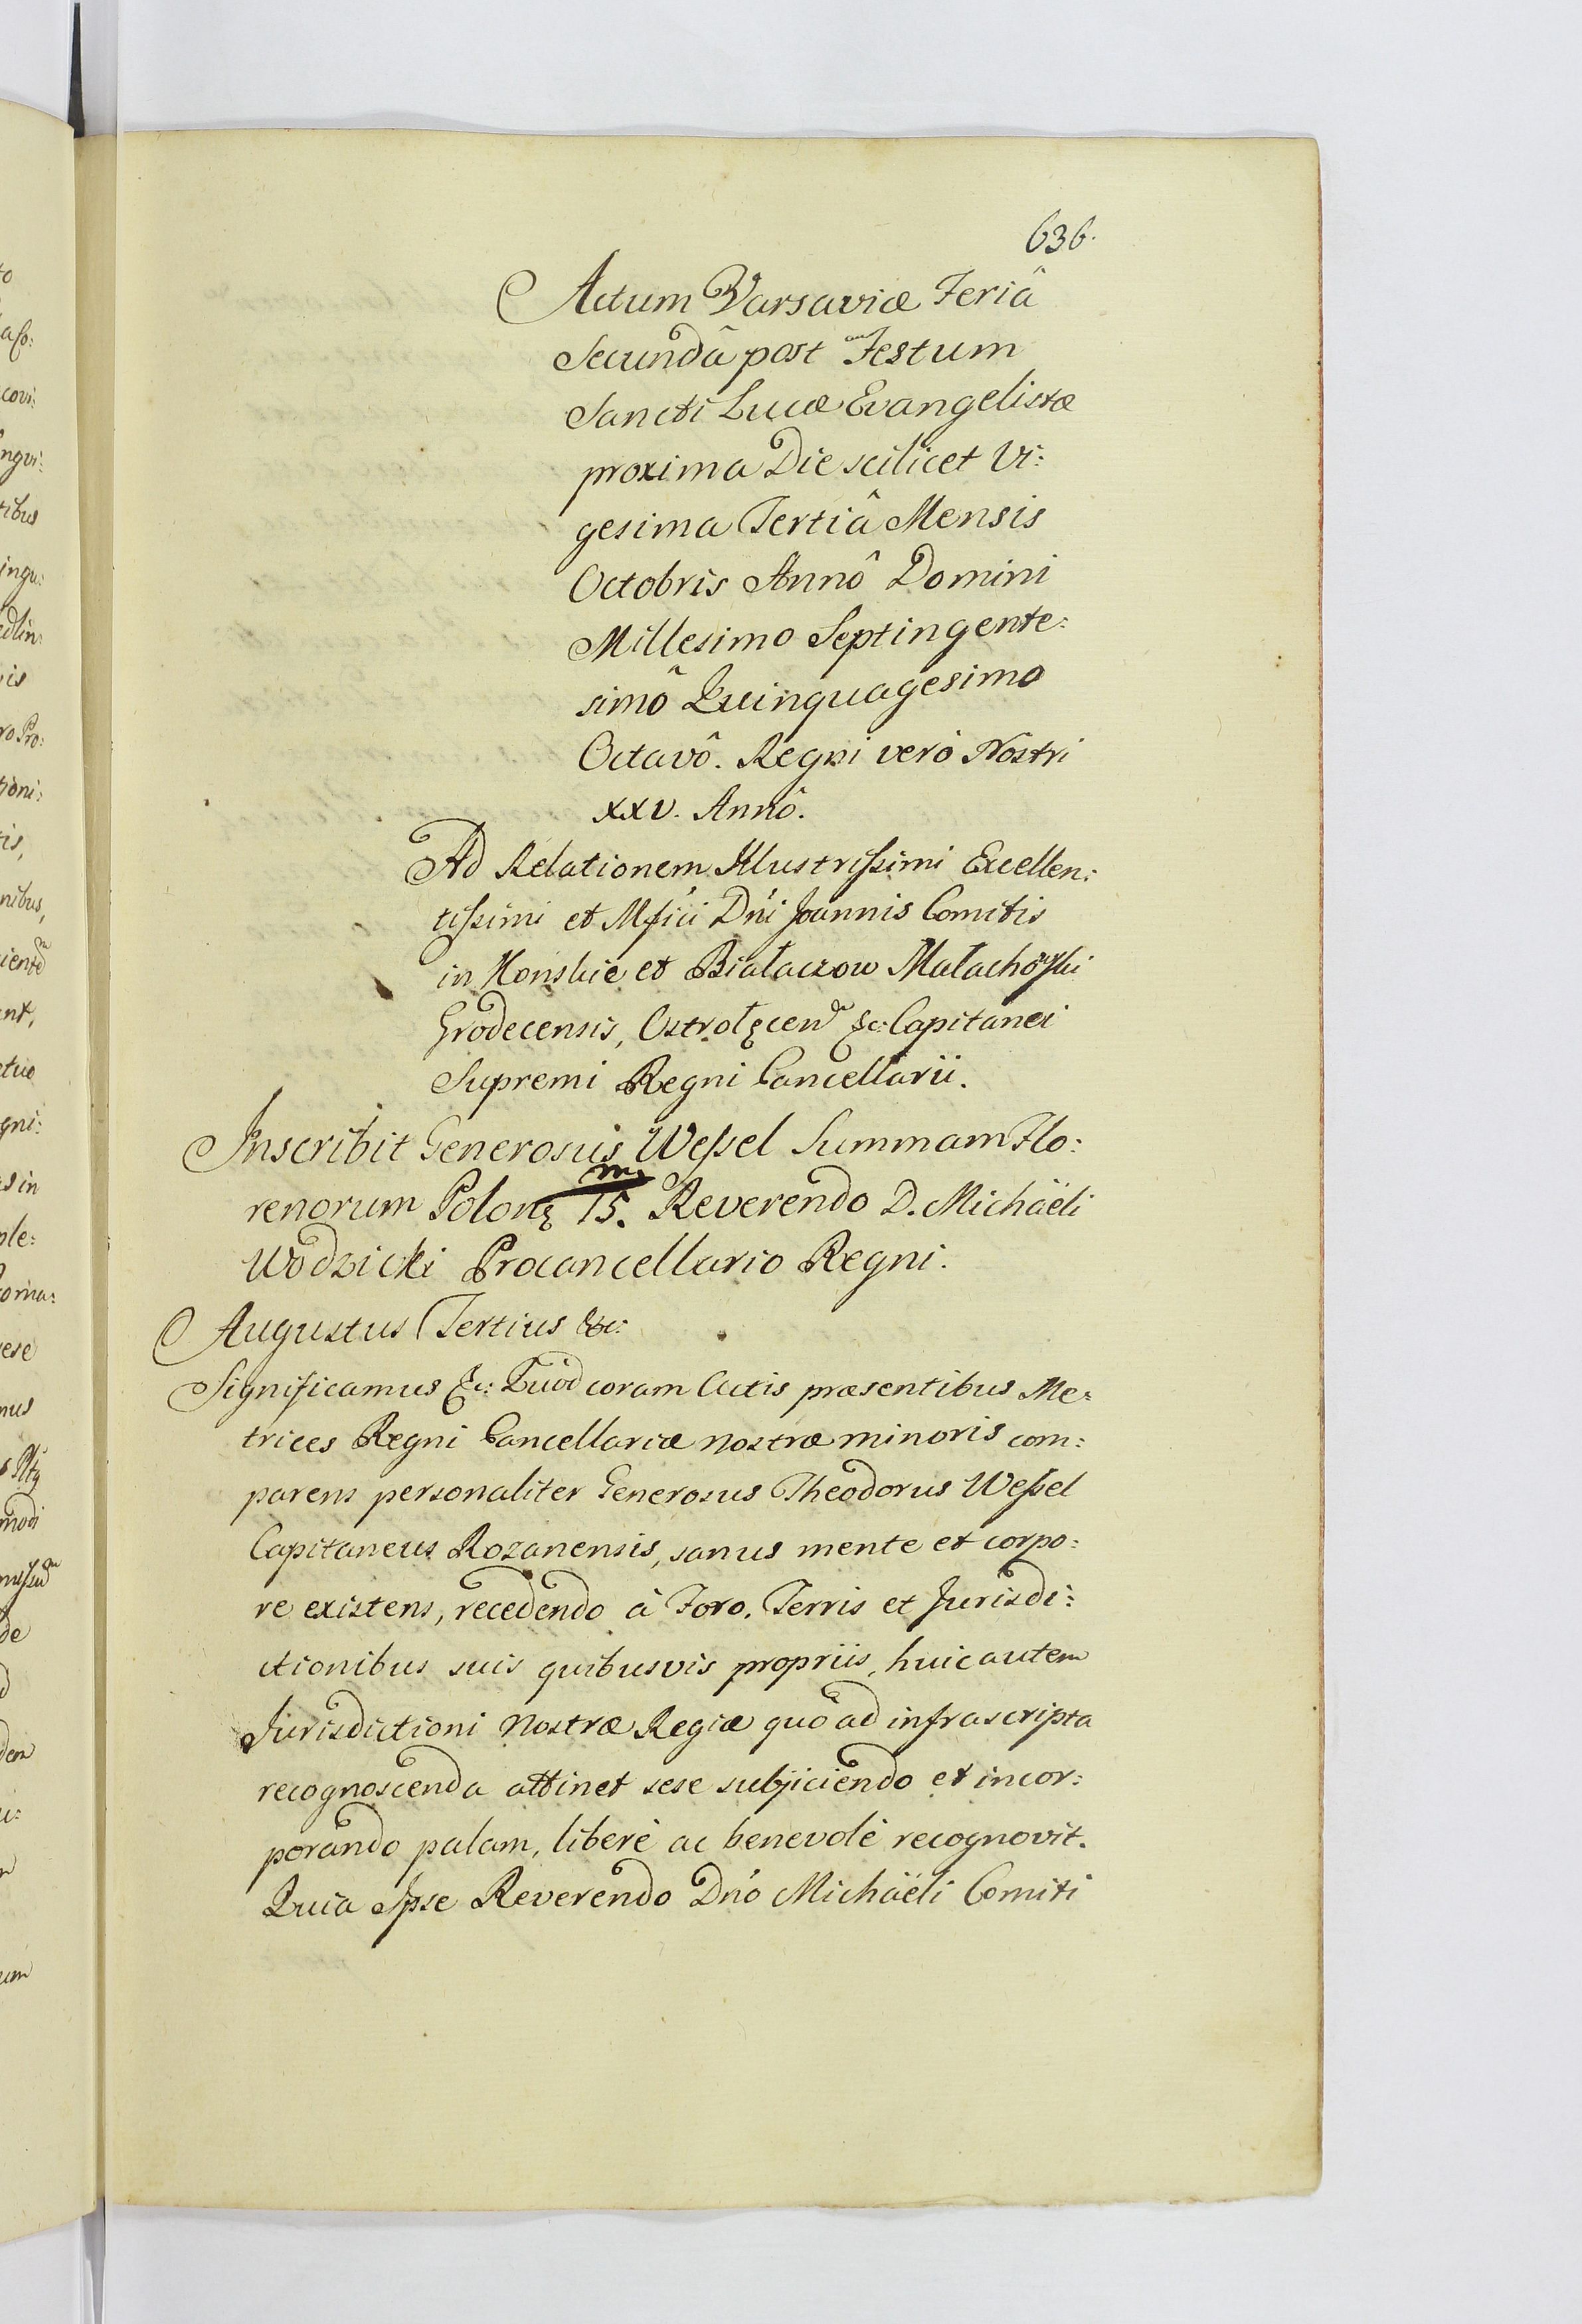 636.
Actum Varsaviæ Feriâ
Secundâ post Festum
Sancti Lucæ Evangelistæ
proxima Die scilicet Vi:
gesima Tertiâ Mensis
Octobris Annô Domini
Millesimo Septingente:
simô Quinquagesimo
Octavô. Regni verò Nostri
XXV. Annô.
Ad Relationem Illustrißimi Excellen:
tißimi et Mfici Dni Joannis Comitis
in Konskie et Białaczow Małachoski
Grodecensis, Ostrołęcen &c: Capitanei
Supremi Regni Cancellarii.
Inscribit Generosus Weßel Summam Flo:
renorum Polonę 15. m Reverendo D. Michäeli
Wodzicki Procancellario Regni.
Augustus Tertius &c:
Significamus &c: Quod coram Actis præsentibus Me:
trices Regni Cancellariæ nostræ minoris com:
parens personaliter Generosus Theodorus Weßel
Capitaneus Rozanensis, sanus mente et corpo:
re existens, recedendo à Foro, Terris et Jurisdi:
ctionibus suis quibusvis propriis, huic autem
Jurisdictioni nostræ Regiæ quò ad infrascripta
recognoscenda attinet sese subjiciendo et incor:
porando palam, liberè ac benevolè recognovit.
Quia Ipse Reverendo Dno Michäeli Comiti